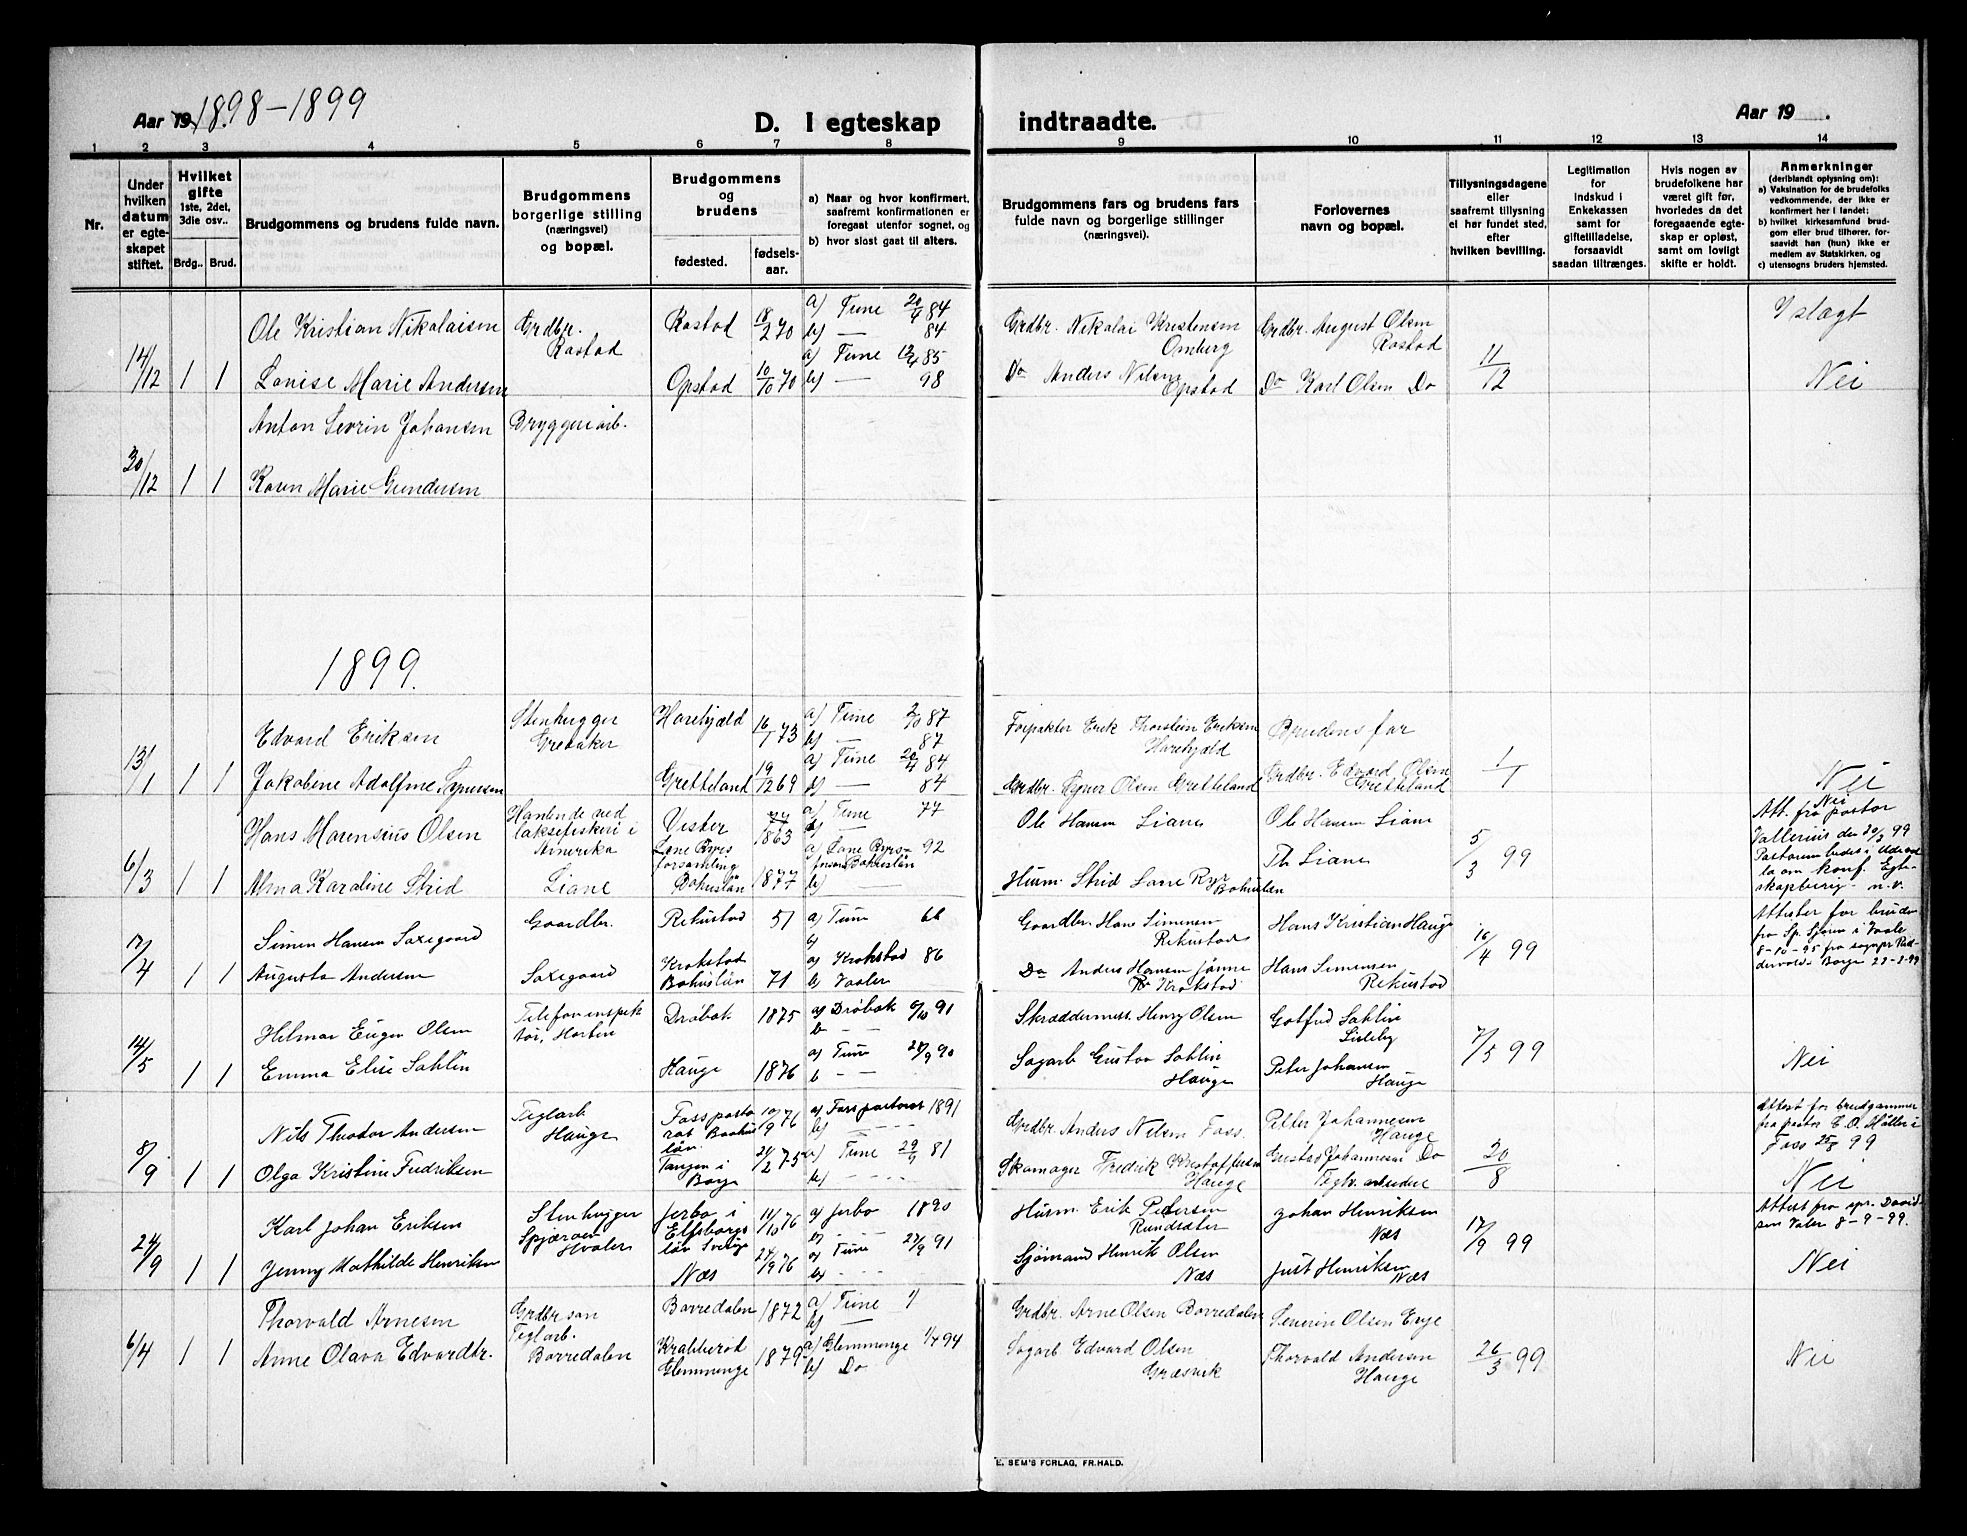 Aar 19 1898-1899
D. I egteskap indtraadte.
Aar 19 .
1 2 3 4 5 6 7 8 9 10 11 12 13 14
Nr.
Under hvilken datum er egteskapet stiftet.
Hvilket gifte 1ste, 2det, 3die osv..
Brdg.. Brud.
Brudgommens og brudens fulde navn.
Brudgommens borgerlige stilling (næringsvei) og bopæl.
Brudgommens og brudens
fødested. fødselsaar.
a) Naar og hvor konfirmert, saafremt konfirmationen er foregaat utenfor sognet, og
b) hvor sidst gaat til alters.
Brudgommens fars og brudens fars fulde navn og borgerlige stillinger (næringsvei).
Forlovernes navn og bopæl.
Tillysningsdagene eller saafremt tillysning ei har fundet sted, efter hvilken bevilling.
Legitimation for Indskud i Enkekassen samt for giftetilladelse, forsaavidt saadan tiltrænges.
Hvis nogen av brudefolkene har været gift før, hvorledes da det foregaaende egteskap er opløst, samt om lovligt skifte er holdt.
Anmerkninger (deriblandt oplysning om):
a) Vaksination for de brudefolks vedkommende, der ikke er konfirmert her i landet;
b) hvilket kirkesamfund brudgom eller brud tilhører, forsaavidt han (hun) ikke er medlem av Statskirken, og
c) utensogns bruders hjemsted.
Ole Kristian Nikolaisen Grdbr. Rostad Rostad 18/2 70 a) Tune 20/4 84 b) — 84 Grdbr. Nikolai Kristensen Omberg Grdbr. August Olsen Rostad I slægt
14/12 1 1 Lovise Marie Andersen Opstad 10/10 70 a) Tune 85 b) — 98 Do Anders Nilsen Opstad Do Karl Olsen Do 11/12 Nei
Anton Sevrin Johansen Bryggeriarb.
30/12 1 1 Karen Marie Gundersen
1899.
Edvard Eriksen Stenhugger Greaaker Harehjæld 16/1 73 a) Tune 2/10 87 b) — 87 Forpakter Erik Thorstein Eriksen Harehjæld Brudens far
13/1 1 1 Jakobine Adolfine Gretteland 19/12 69 a) Tune 84 b) — 84 Grdbr. Olsen Gretteland Grdbr. Edvard Olsen Gretteland 1/1 Nei
Hans Marensius Olsen laksefiskeri i Amerika Vister 1863 a) Tune 77 Ole Hansen Liane Ole Hansen Liane Nei
6/3 1 1 Alma Karoline Strid Liane Lane Ryrs forsamling Bohuslän 1877 a) Lane Ryrs Bohuslän 92 b) — Husm. Strid Lane Ryr Bohuslen Th Liane 5/3 99 Att. fra pastor Vallerius
Simen Hansen Saxegaard Gaardbr. Rekustad 51 a) Tune 66 Gaardbr. Hans Simensen Rekustad Hans Kristian Hauge Attester for bruden
17/4 1 1 Augusta Andersen Saxegaard Krokstad Bohuslän 71 a) Krokstad 86 b) Vaaler Do Anders Hansen Krokstad Hans Simensen Rekustad 16/4 99
Hilmar Eugen Olsen Telefoninspektör, Horten Dröbak 1875 a) Dröbak 6/10 91 Skræddermest. Henry Olsen Gotfred Sahlin Lisleby
14/5 1 1 Emma Elise Sahlin Hauge 1876 a) Tune 90 b — Sagarb Gustav Sahlin Hauge Peter Johansen Hauge 7/5 99 Nei
Nils Theodor Andersen Teglarb Hauge Foss pastorat Baahuslän 10/9 76 a) Foss pastorat 1891 Grdbr. Anders Nilsen Foss. Petter Johannesen Hauge Attest for brudgommen fra pastor E. O. Hätter i Foss 25/8 99
8/9 1 1 Olga Kristine Fredriksen Tangen i Borge 75 a) Tune 81 Skomager Fredrik Kristoffersen Hauge Gustav Johannesen Do Teglv. arbeidere 20/8 Nei
Karl Johan Eriksen Stenhugger Spjæröen Hvaler Jerbo i Elfsborgs län Sverige 11/10 76 a) Jerbo 1890 Husm. Erik Petersen Rundsæter Johan Henriksen Næs Attest fra spr. Davidsen Valer 8-9-99.
24/9 1 1 Jenny Mathilde Henriksen Næs 76 a) Tune 91 Sjömand Henrik Olsen Næs Just Henriksen Næs 17/9 99 Nei
Thorvald Arnesen Grdbr.søn Teglarb. Borredalen Borredalen 1872 a) Tune b) — Grdbr. Arne Olsen Borredalen Severin Olsen Enge
6/4 1 1 Anne Olava Edvardbr. Krabberød Glemminge 1879 a) Glemminge 94 b) Do Sagarb Edvard Olsen Græsvik Thorvald Andersen Hauge 26/3 99 Nei
E. SEM'S FORLAG, FR.HALD.